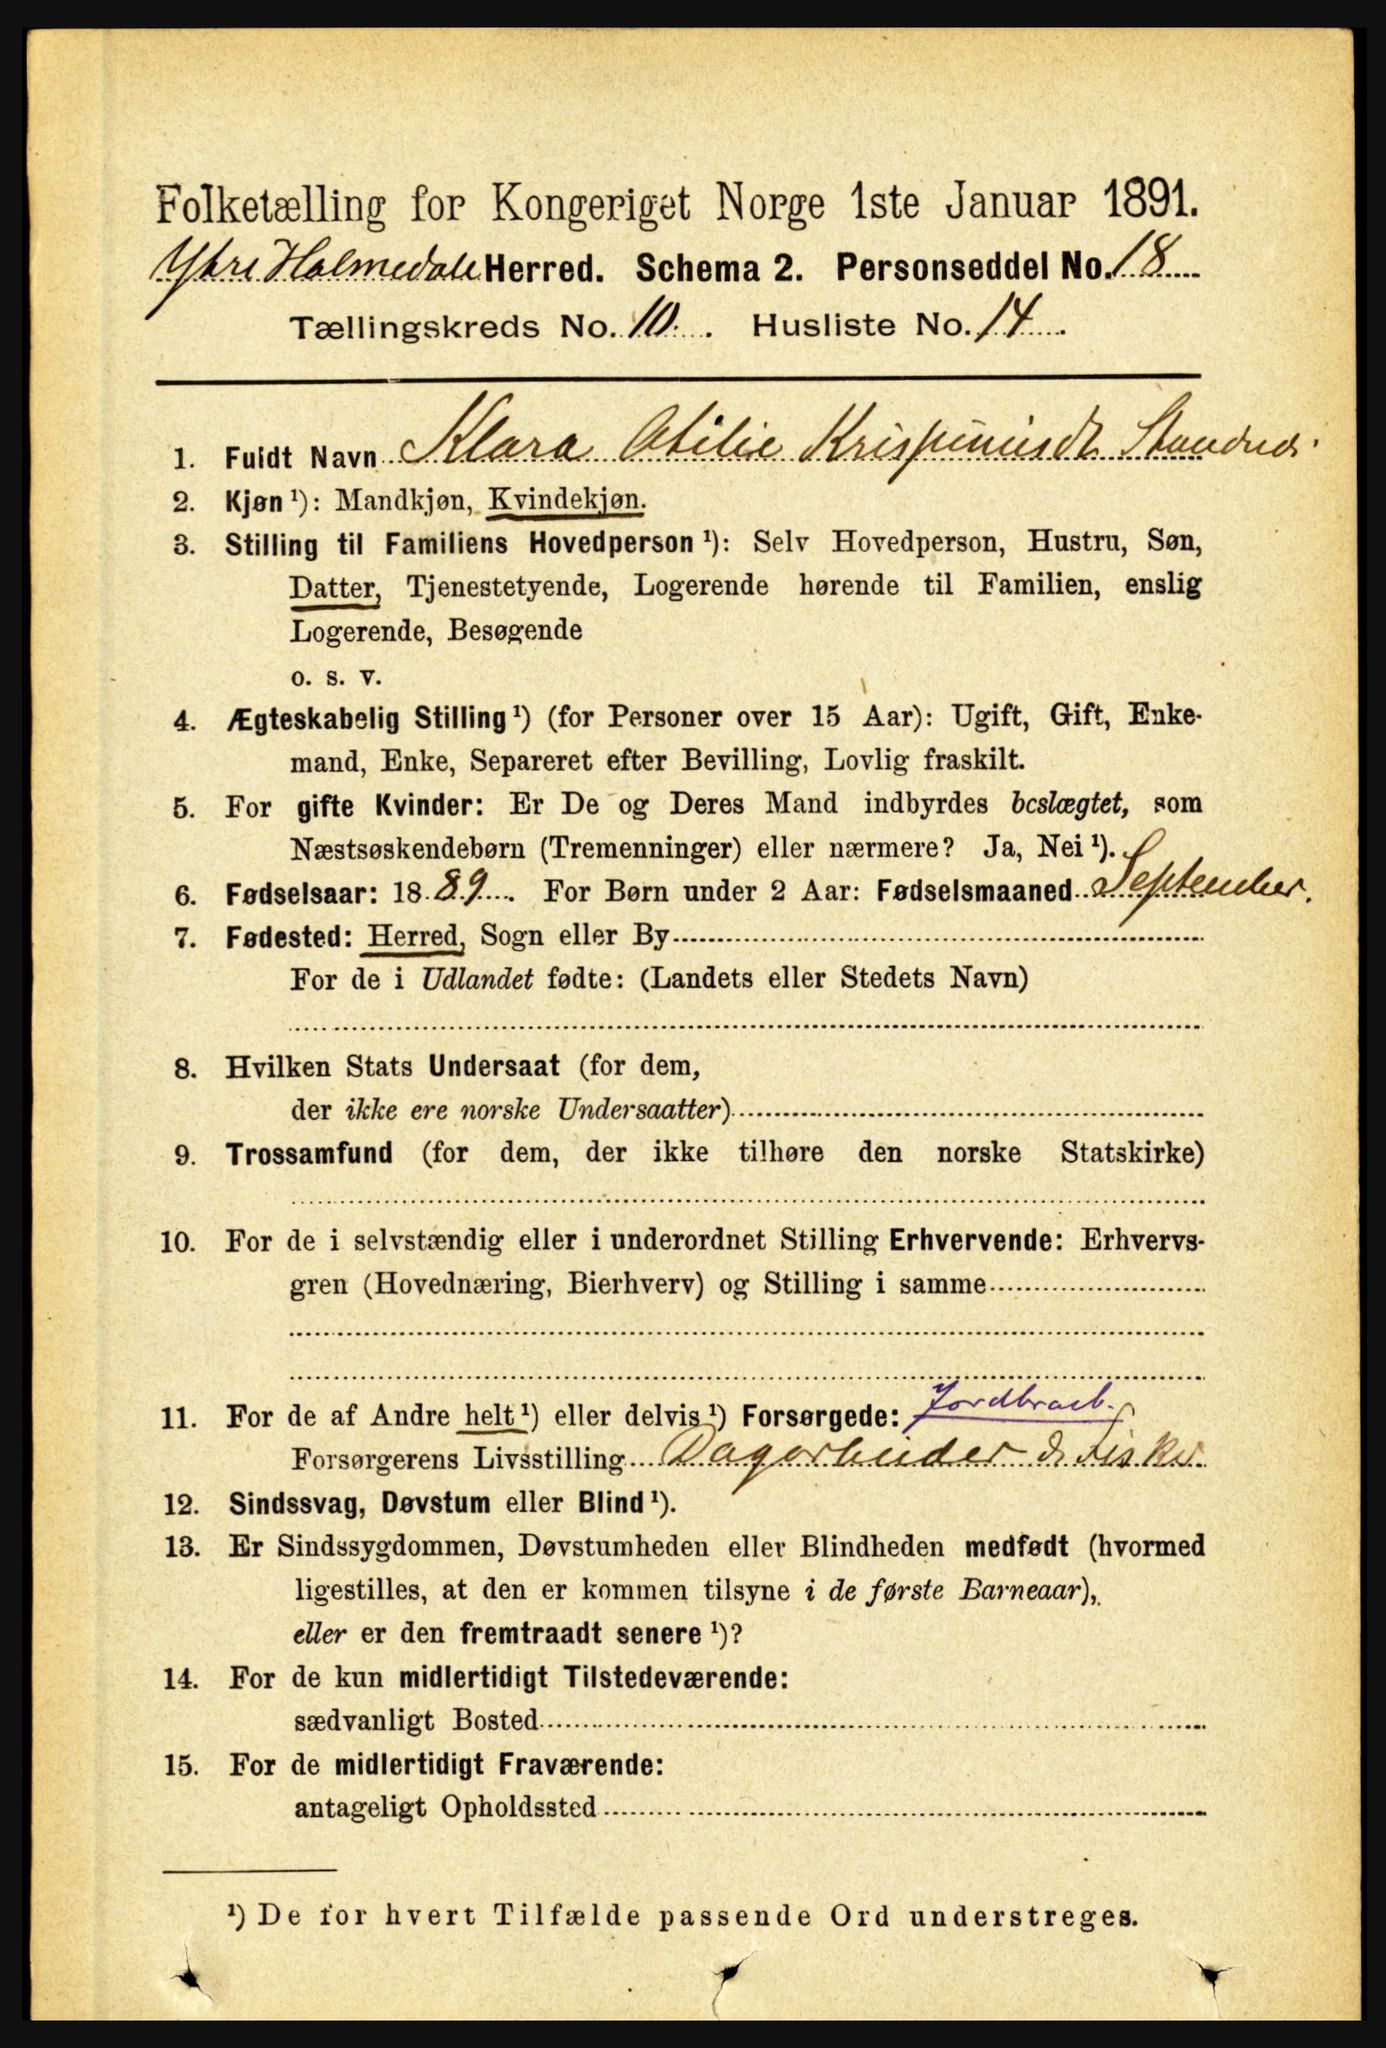 Folketælling for Kongeriget Norge 1ste Januar 1891.
Ytre Holmedals Herred. Schema 2. Personseddel No. 18
Tællingskreds No. 10. Husliste No. 14
1. Fuldt Navn Klara Otilie Krispinusdt.
2. Kjøn ¹): Mandkjøn, Kvindekjøn.
3. Stilling til Familiens Hovedperson ¹): Selv Hovedperson, Hustru, Søn,
Datter, Tjenestetyende, Logerende hørende til Familien, enslig
Logerende, Besøgende
o. s. v.
4. Ægteskabelig Stilling ¹) (for Personer over 15 Aar): Ugift, Gift, Enke-
mand, Enke, Separeret efter Bevilling, Lovlig fraskilt.
5. For gifte Kvinder: Er De og Deres Mand indbyrdes beslægtet, som
Næstsøskendebørn (Tremenninger) eller nærmere? Ja, Nei ¹).
6. Fødselsaar: 1889. For Børn under 2 Aar: Fødselsmaaned September.
7. Fødested: Herred, Sogn eller By
For de i Udlandet fødte: (Landets eller Stedets Navn)
8. Hvilken Stats Undersaat (for dem,
der ikke ere norske Undersaatter)
9. Trossamfund (for dem, der ikke tilhøre den norske Statskirke)
10. For de i selvstændig eller i underordnet Stilling Erhvervende: Erhvervs-
gren (Hovednæring, Bierhverv) og Stilling i samme
11. For de af Andre helt ¹) eller delvis ¹) Forsørgede: Jordbrarb.
Forsørgerens Livsstilling Dagarbeider & Fisker
12. Sindssvag, Døvstum eller Blind ¹).
13. Er Sindssygdommen, Døvstumheden eller Blindheden medfødt (hvormed
ligestilles, at den er kommen tilsyne i de første Barneaar),
eller er den fremtraadt senere ¹)?
14. For de kun midlertidigt Tilstedeværende:
sædvanligt Bosted
15. For de midlertidigt Fraværende:
antageligt Opholdssted
¹) De for hvert Tilfælde passende Ord understreges.